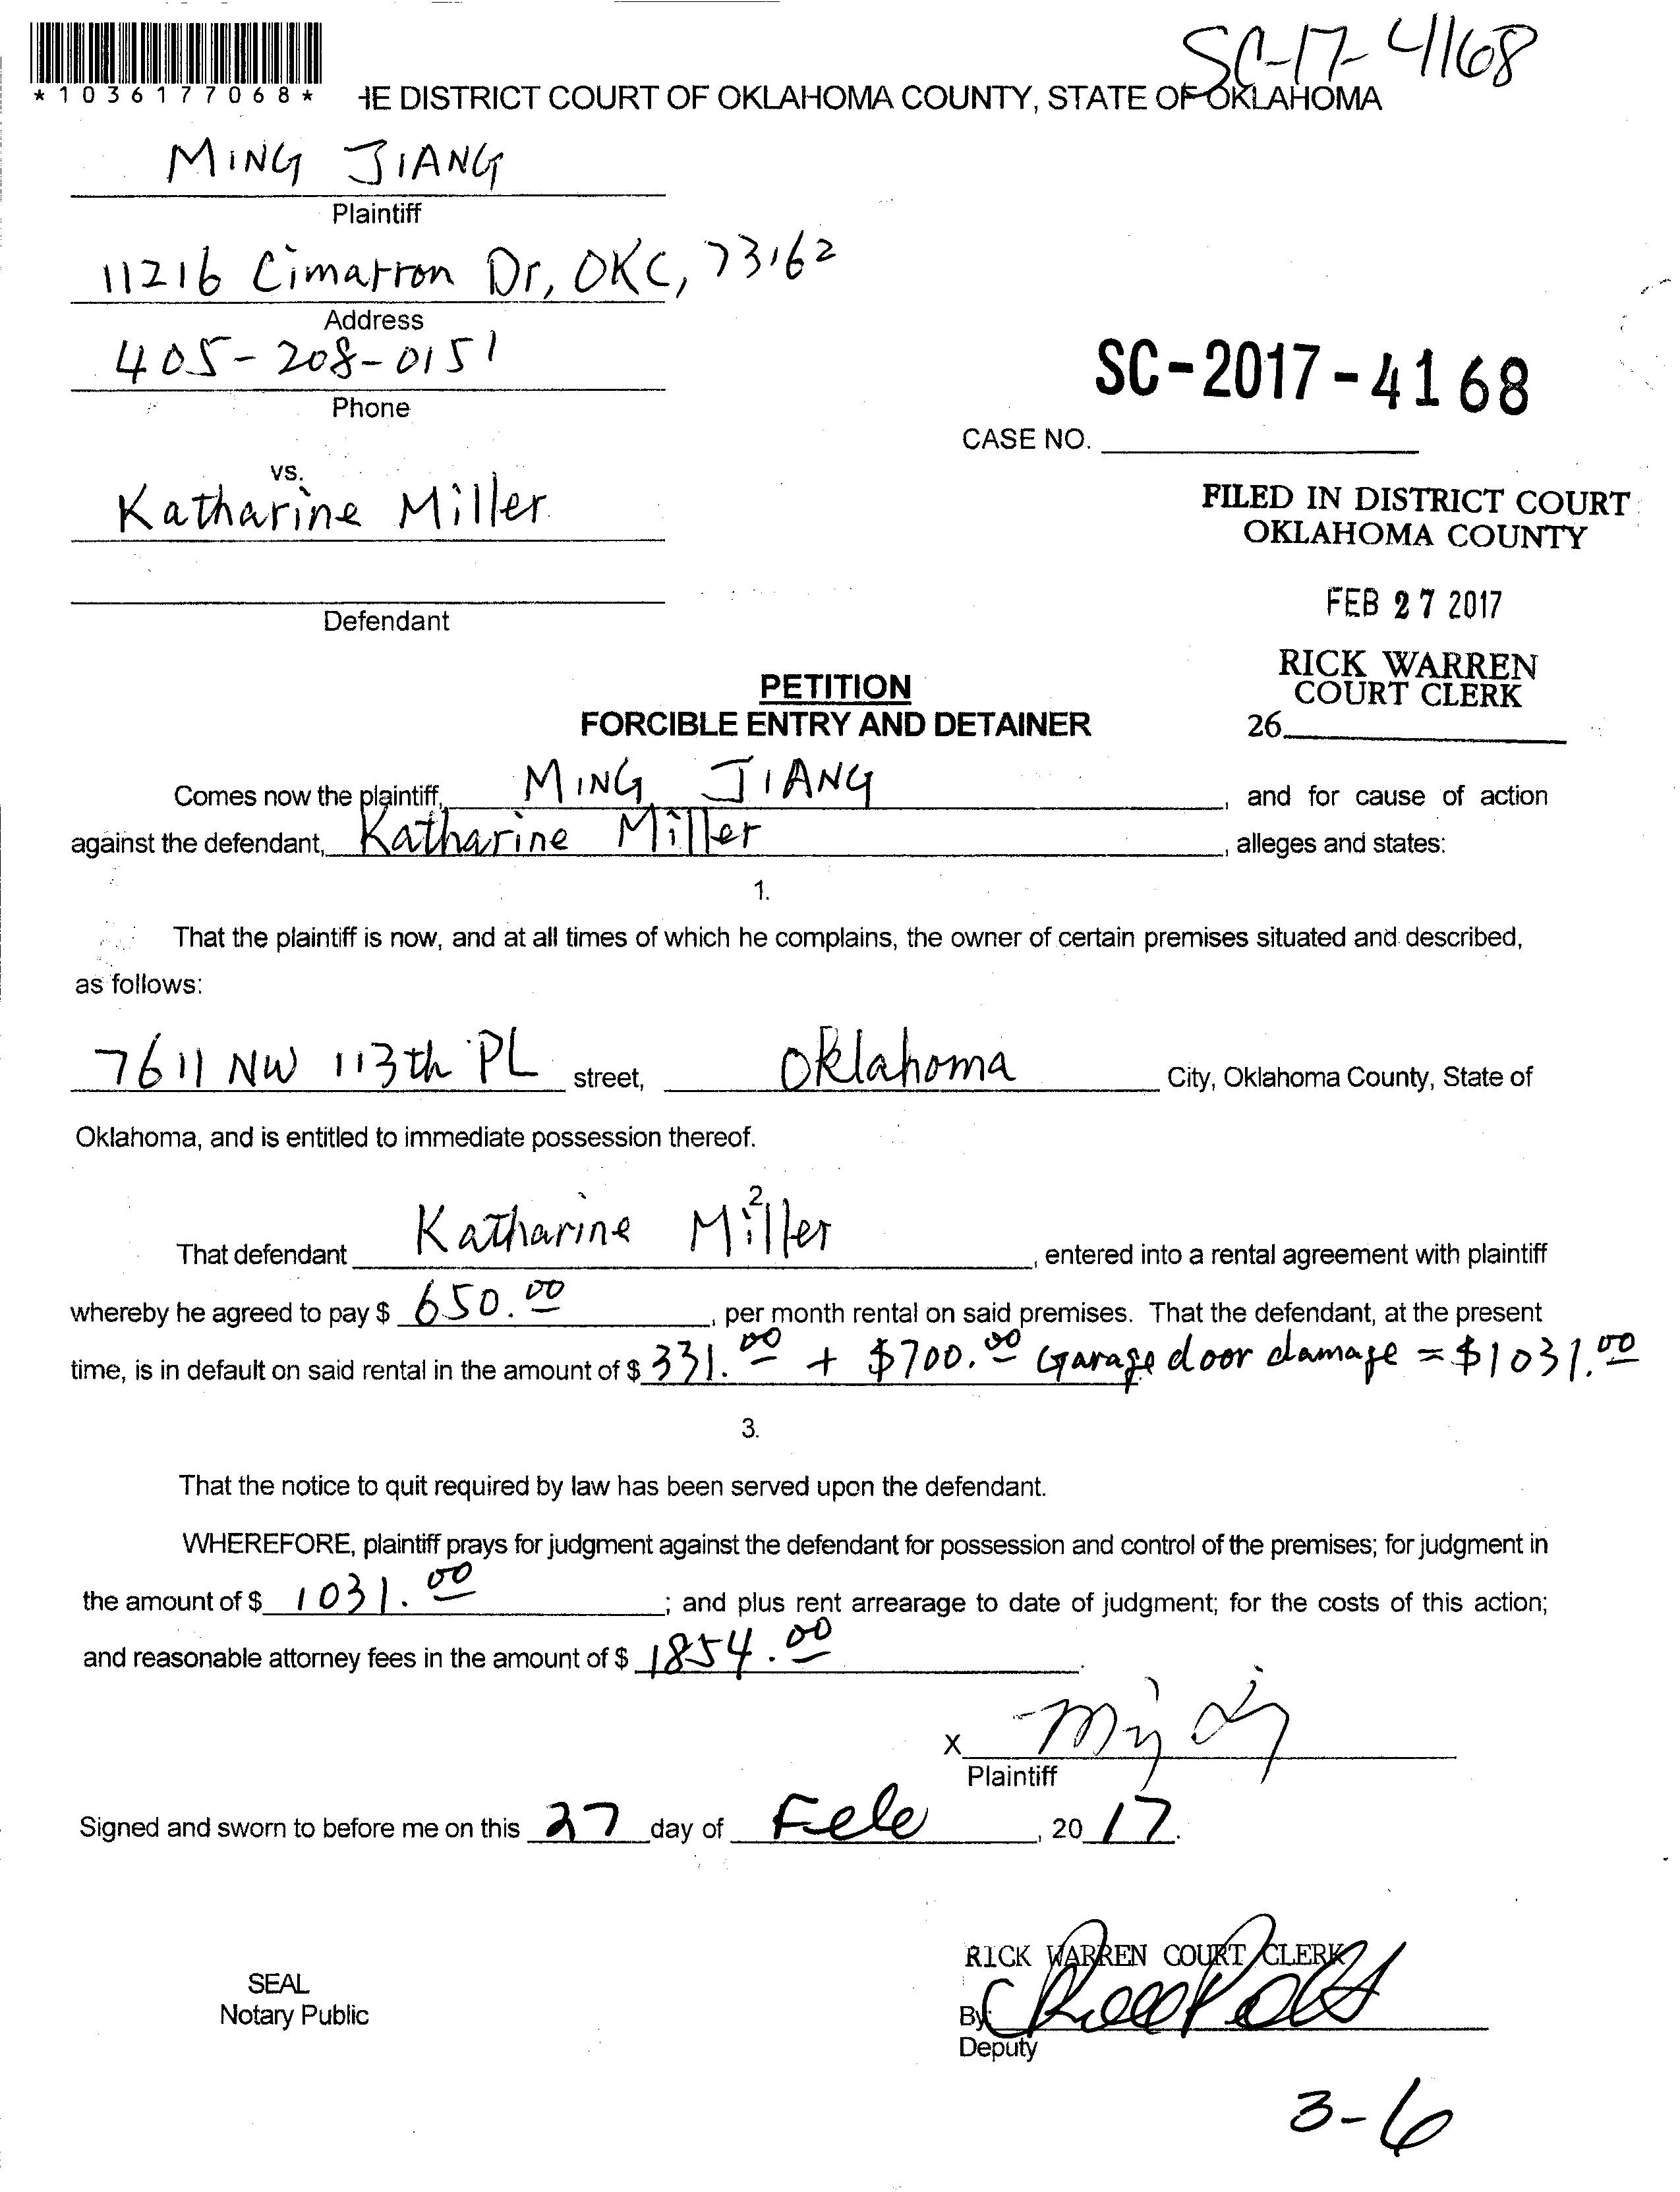 SC-17-4168
*1036177068*
HE DISTRICT COURT OF OKLAHOMA COUNTY, STATE OF OKLAHOMA
MING JIANG
Plaintiff
11216 Cimarron Dr, OKC, 73162
Address
405-208-0151
Phone
SC-2017-4168
CASE NO.
vs.
Katharine Miller
FILED IN DISTRICT COURT
OKLAHOMA COUNTY
Defendant
FEB 27 2017
RICK WARREN
COURT CLERK
26
PETITION
FORCIBLE ENTRY AND DETAINER
Comes now the plaintiff, MING JIANG, and for cause of action
against the defendant, Katharine Miller, alleges and states:
1.
That the plaintiff is now, and at all times of which he complains, the owner of certain premises situated and described,
as follows:
7611 NW 113th PL street, Oklahoma City, Oklahoma County, State of
Oklahoma, and is entitled to immediate possession thereof.
2.
That defendant Katharine Miller, entered into a rental agreement with plaintiff
whereby he agreed to pay $ 650.00, per month rental on said premises. That the defendant, at the present
time, is in default on said rental in the amount of $ 331.00 + $700.00 Garage door damage = $1031.00
3.
That the notice to quit required by law has been served upon the defendant.
WHEREFORE, plaintiff prays for judgment against the defendant for possession and control of the premises; for judgment in
the amount of $ 1031.00; and plus rent arrearage to date of judgment; for the costs of this action;
and reasonable attorney fees in the amount of $ 1854.00.
X
Plaintiff
Signed and sworn to before me on this 27 day of Feb, 2017.
RICK WARREN COURT CLERK
SEAL
Notary Public
By:
Deputy
3-6